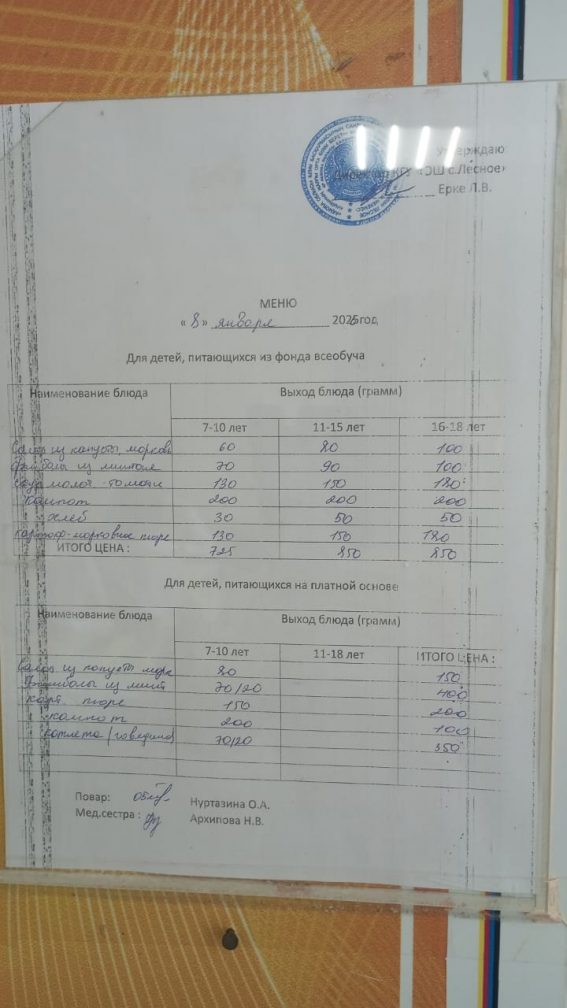 Утверждаю
Директор КГУ «ОШ с.Лесное»
Ерке Л.В.
МЕНЮ
« 8 » января 2026год
Для детей, питающихся из фонда всеобуча
Наименование блюда Выход блюда (грамм)
7-10 лет 11-15 лет 16-18 лет
Салат из капусты, моркови 60 80 100
Фишболы из минтая 70 90 100
Соус молоч-томатн 130 150 180
Компот 200 200 200
хлеб 30 50 50
картоф-морковное пюре 130 150 180
ИТОГО ЦЕНА : 725 850 850
Для детей, питающихся на платной основе
Наименование блюда Выход блюда (грамм)
7-10 лет 11-18 лет ИТОГО ЦЕНА :
Салат из капусты морк 80 150
Фишболы из минт 70/20 400
карт. пюре 150 200
компот 200 100
котлета (говядина) 70/20 350
Повар: Нуртазина О.А.
Мед.сестра : Архипова Н.В.